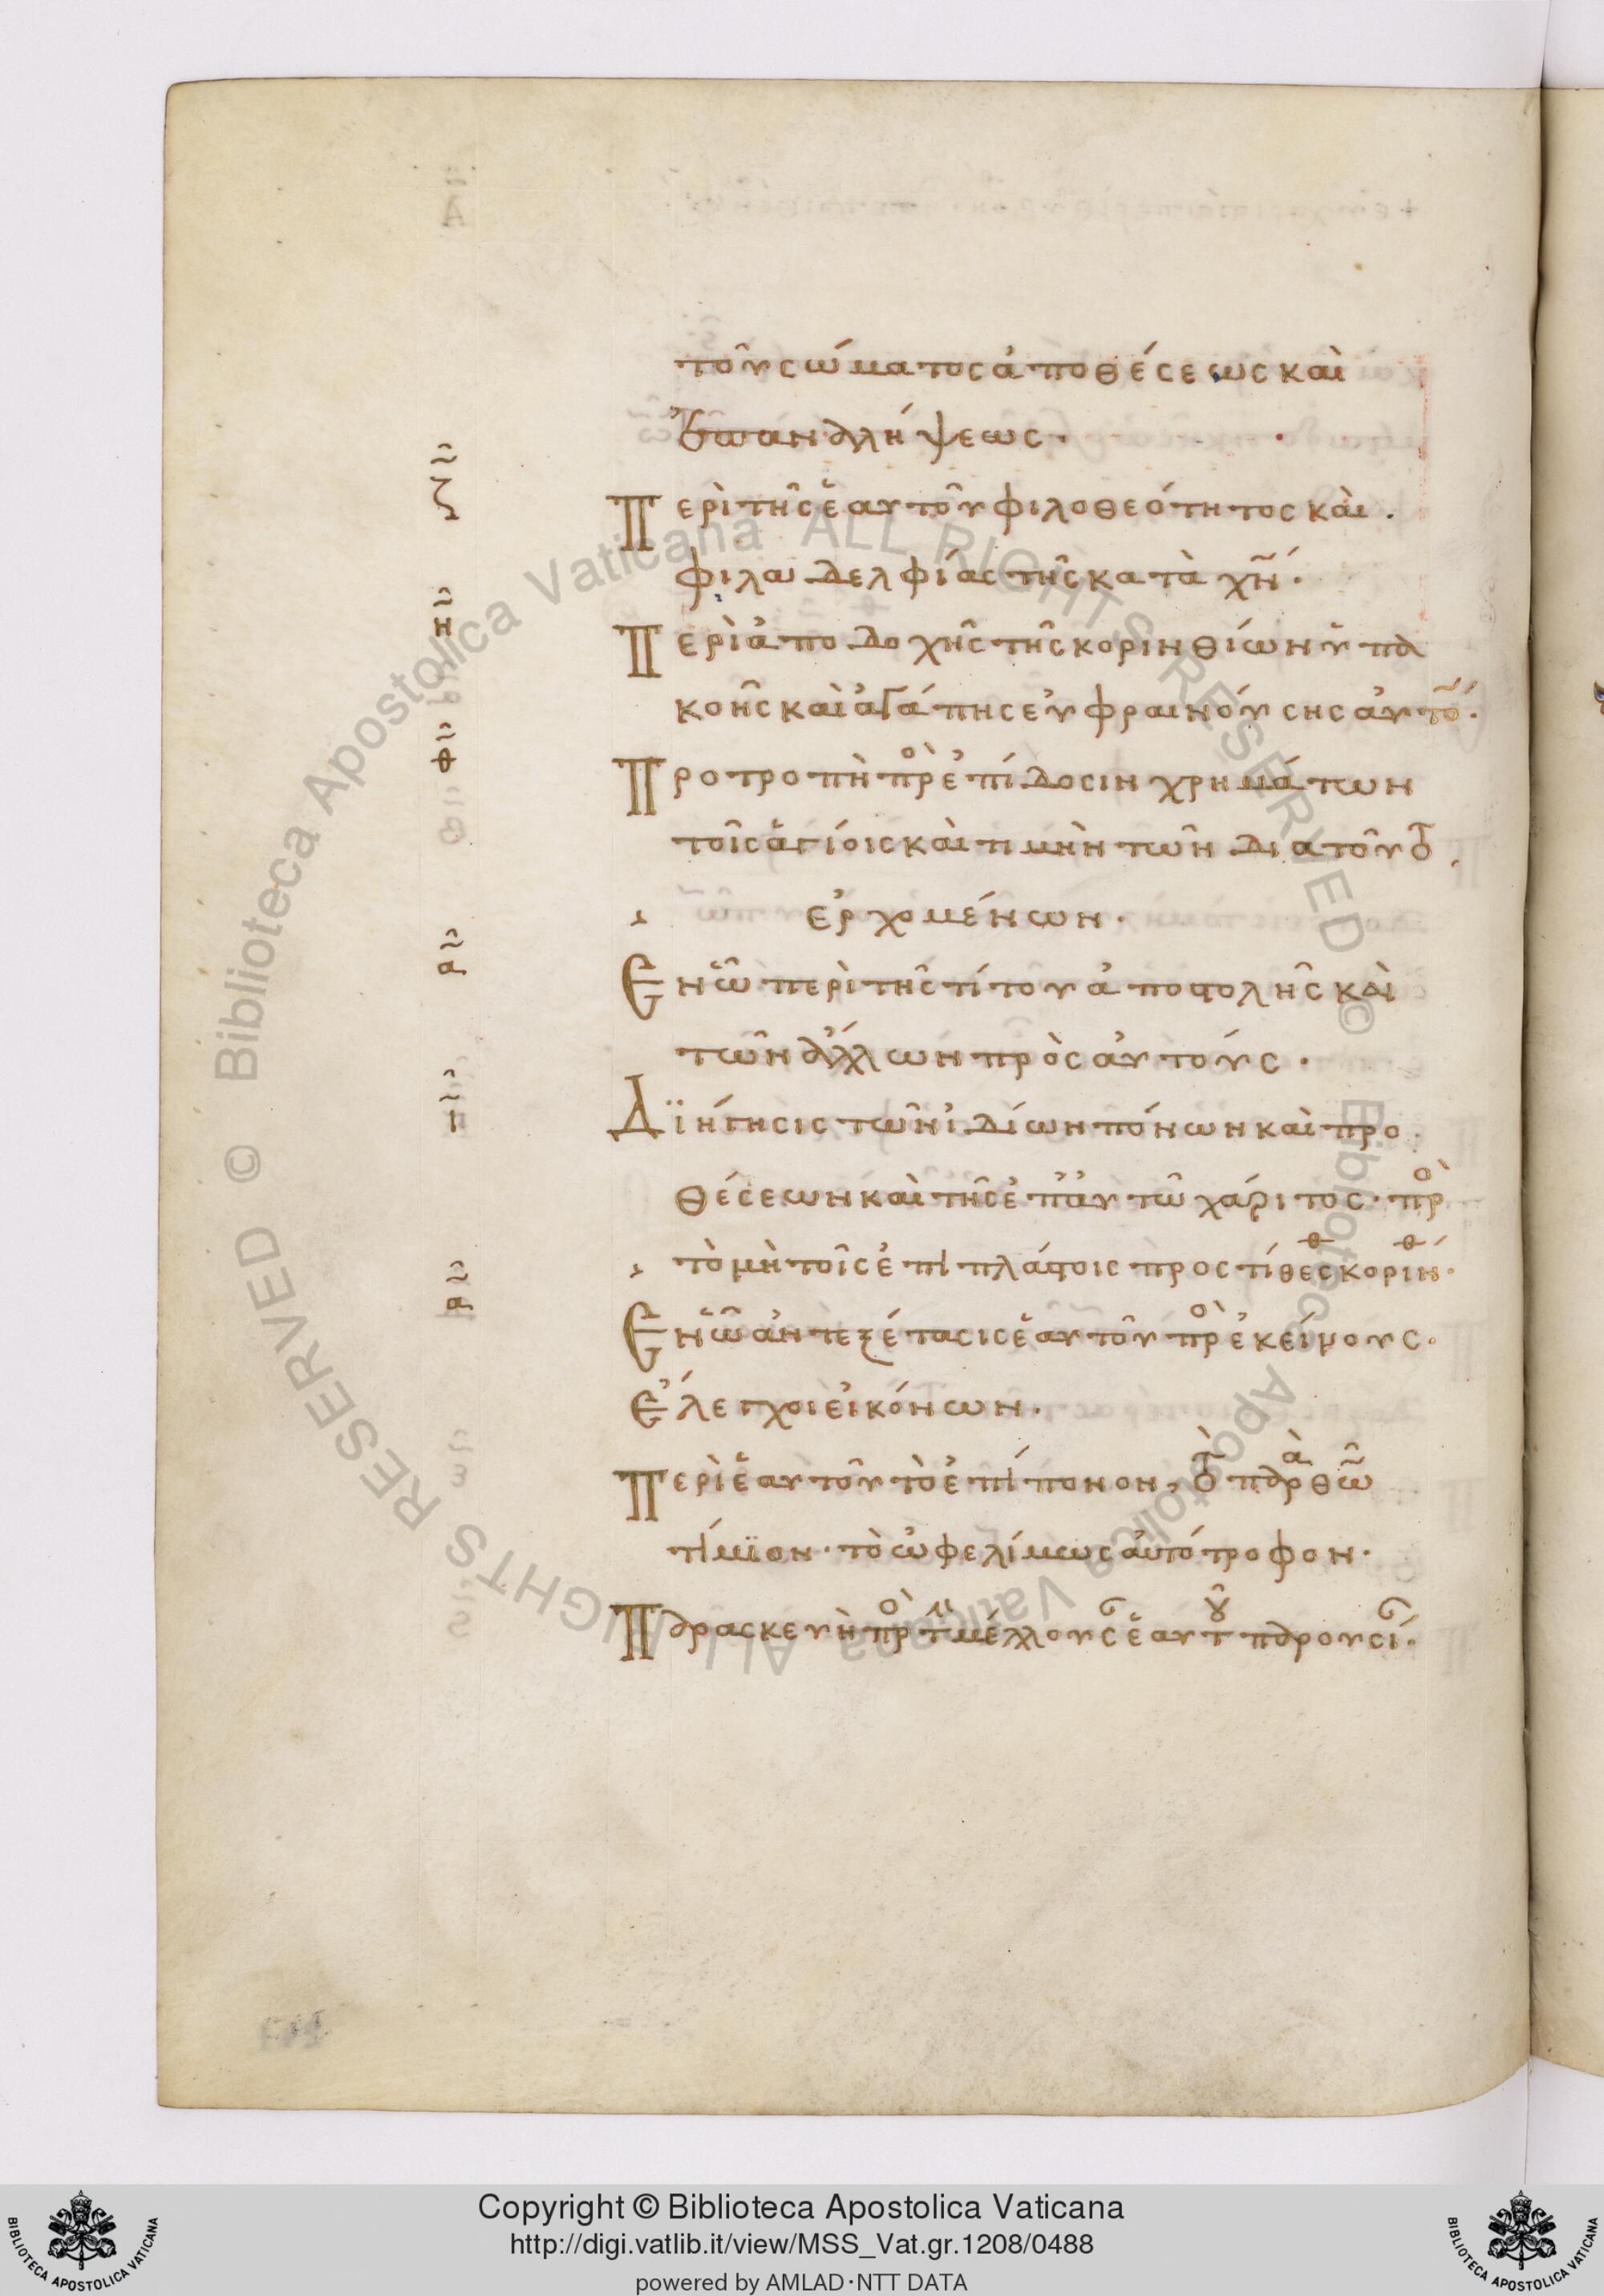 τοῦ σώματος ἀποθέσεως καὶ
ἐπαναλήψεως·
ζ Περὶ τῆς ἑαυτοῦ φιλοθεότητος καὶ
φιλαδελφίας τῆς κατὰ χν·
η Περὶ ἀποδοχῆς τῆς κορινθίων ὑπα
κοῆς καὶ ἀγάπης εὐφραινούσης αὐτό·
θ Προτροπὴ πρὸ ἐπίδοσιν χρημάτων
τοῖς ἁγίοις καὶ τιμὴν τῶν διὰ τοῦτο
ἐρχομένων·
α Ἐν ᾧ περὶ τῆς τίτου ἀποστολῆς καὶ
τῶν ἄλλων πρὸς αὐτούς·
ι Διήγησις τῶν ἰδίων πόνων καὶ προ
θέσεων καὶ τῆς ἐπ' αὐτῶ χάριτος· πρὸ
τὸ μὴ τοῖς ἐπιπλάστοις προστίθεσθ κορινθ·
α Ἐν ᾧ ἀντεξέτασις ἑαυτοῦ πρὸ ἐκείνους·
Ἔλεγχοι εἰκόνων·
Περὶ ἑαυτοῦ τὸ ἐπίπονον, τὸ παρὰ θῶ
τίμιον· τὸ ὠφελίμως αὐτότροφον·
Παρασκευὴ πρὸ τμ μέλλουσ ἑαυτοῦ παρουσί·
Copyright © Biblioteca Apostolica Vaticana
http://digi.vatlib.it/view/MSS_Vat.gr.1208/0488
powered by AMLAD·NTT DATA
BIBLIOTECA APOSTOLICA VATICANA
BIBLIOTECA APOSTOLICA VATICANA
© Biblioteca Apostolica Vaticana ALL RIGHTS RESERVED © Biblioteca Apostolica Vaticana ALL RIGHTS RESERVED